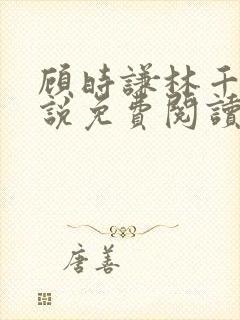 顾時謙林千
說免費閱讀
唐善